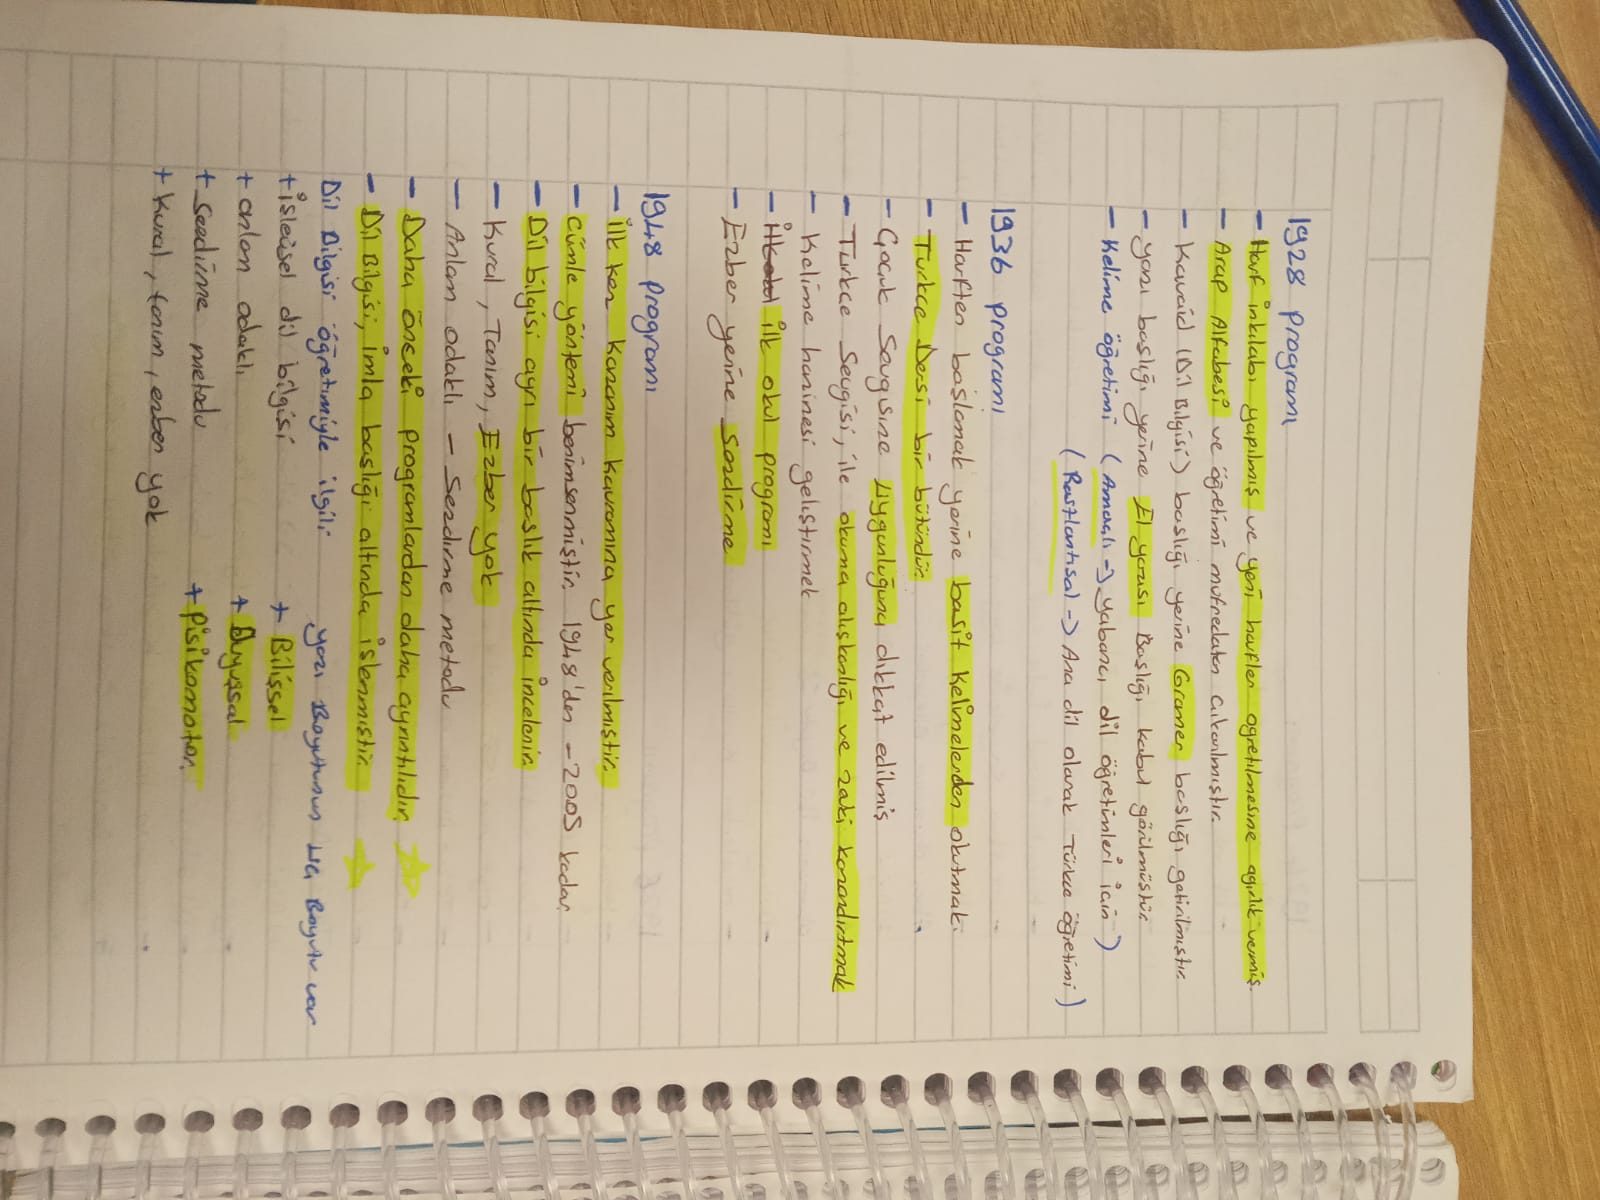 1928 programı
- Harf inkılabı yapılmış ve yeni harfler öğretilmesine ağırlık vermiş.
- Arap Alfabesi ve öğretimi müfredattan çıkarılmıştır.
- Kavaid (Dil Bilgisi) başlığı yerine Gramer başlığı getirilmiştir.
- Yazı başlığı yerine El yazısı Başlığı kabul görülmüştür.
- Kelime öğretimi (Amaçlı -> yabancı dil öğretimleri için)
(Rastlantısal -> Ana dil olarak Türkçe öğretimi)
1936 programı
- Harften başlamak yerine basit kelimelerden okutmak.
- Türkçe Dersi bir bütündür.
- Çocuk Saygısına uygunluğuna dikkat edilmiş
- Türkçe Sevgisi, ile okuma alışkanlığı ve zevki kazandırtmak
- Kelime hazinesi geliştirmek
- ilk okul programı
- Ezber yerine Sezdirme
1948 programı
- İlk kez kazanım kavramına yer verilmiştir.
- Cümle yöntemi benimsenmiştir. 1948'den - 2005 kadar.
- Dil bilgisi ayrı bir başlık altında incelenir.
- Kural, Tanım, Ezber yok
- Anlam odaklı - Sezdirme metodu
- Daha önceki programlardan daha ayrıntılıdır.
- Dil Bilgisi, imla başlığı altında işlenmiştir.
Dil Bilgisi öğretimiyle ilgili Yazı Boyutunun Üç Boyutu var
+ işlevsel dil bilgisi + Bilişsel
+ anlam odaklı + Duyuşsal
+ Sezdirme metodu + Pisikomotor
+ Kural, tanım, ezber yok